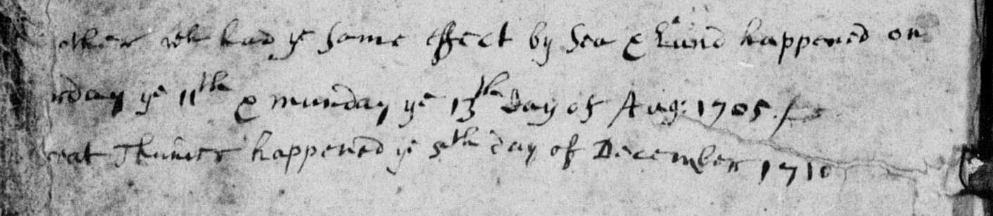 other wch had ye same effect by Sea & Land happened on
rday ye 11th & munday ye 13th day of Aug: 1705.
reat Thunder happened ye 5th day of December 1710